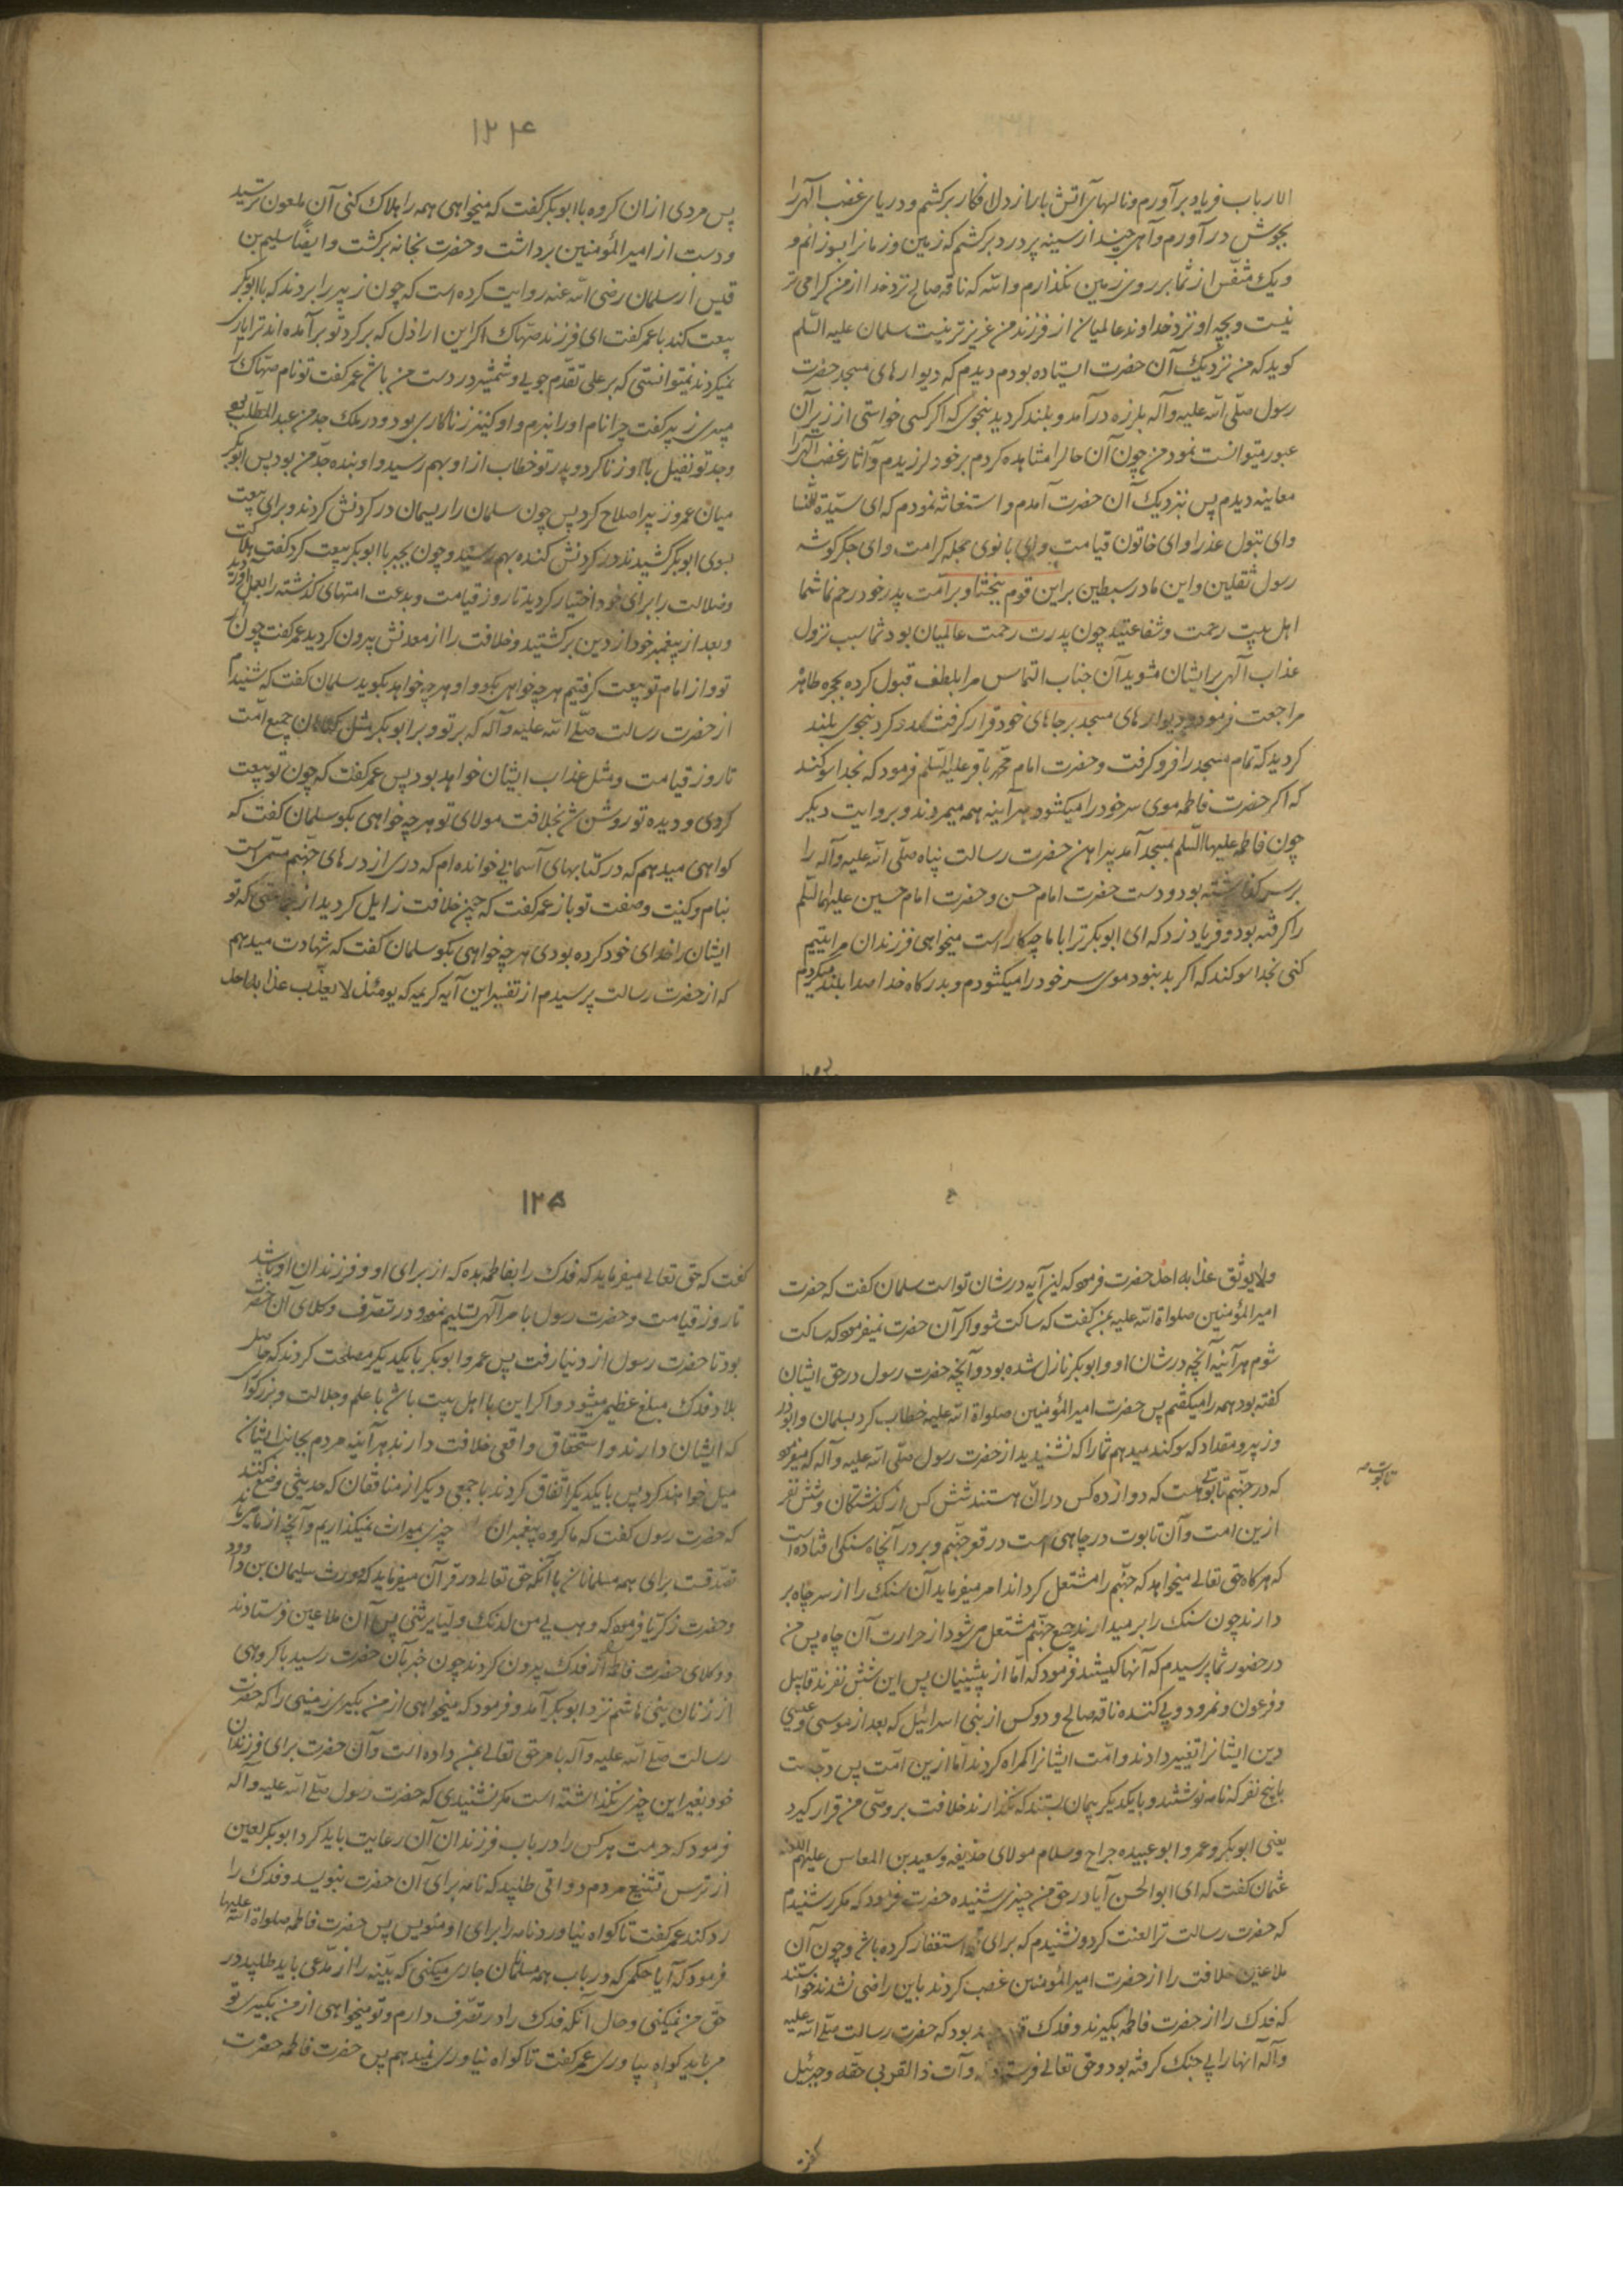 الارباب فریاد برآورم و نالهای آتش بار از دل افکار برکشم و دریای غضب الهی را
بجوش درآورم و آهی چند از سینه پر درد برکشم که زمین و زمانرا بسوزانم و
و یک متنفس از شما بر روی زمین نکذارم والله که ناقه صالح نزد خدا از من کرامی تر
نیست و بچه او نزد خداوند عالمیان از فرزند من عزیزتر نیست سلمان علیه السلم
کوید که من نزدیک آن حضرت ایستاده بودم دیدم که دیوارهای مسجد حضرت
رسول صلی الله علیه وآله بلرزه درآمد و بلند کردید بنحوی که اکر کسی خواستی از زیر آن
عبور میتوانست نمود من چون آن حالرا مشاهده کردم برخود لرزیدم و آثار غضب الهی را
معاینه دیدم پس بنزدیک آن حضرت آمدم و استغاثه نمودم که ای سیدة النسا
وای بتول عذرا وای خاتون قیامت وای بانوی حجله کرامت وای جکرکوشه
رسول ثقلین و این مادر سبطین براین قوم ببخشا و برامت پدر خود رحم نما شما
اهل بیت رحمت و شفاعتید چون پدرت رحمت عالمیان بود شما سبب نزول
عذاب الهی برایشان مشوید آن جناب التماس مرا بلطف قبول کرده بحجره طاهره
مراجعت فرمود و دیوارهای مسجد برجاهای خود قرار کرفت و کرد بنحوی بلند
کردید که تمام مسجد را فرو کرفت و حضرت امام محمد باقر علیه السلم فرمود که بخدا سوکند
که اکر حضرت فاطمه موی سر خود را میکشود هرآینه همه میمردند و بروایت دیکر
چون فاطمه علیها السلم بمسجد آمد پیراهن حضرت رسالت پناه صلی الله علیه وآله را
برسر کذاشته بود و دست حضرت امام حسن و حضرت امام حسین علیهما السلم
را کرفته بود و فریاد زد که ای ابوبکر ترا باما چکار است میخواهی فرزندان مرا یتیم
کنی بخدا سوکند که اکر بد نبود موی سر خود را میکشودم و بدرکاه خدا صدا بلند میکردم
۱۲۴
پس مردی ازان کروه با ابوبکر کفت که میخواهی همه را هلاک کنی آن ملعون ترسید
و دست از امیرالمؤمنین برداشت و حضرت بخانه برکشت و ایضا سلیم بن
قیس از سلمان رضی الله عنه روایت کرده است که چون زبیر را بردند که با ابوبکر
بیعت کند با عمر کفت ای فرزند صهاک اکر این اراذل که برکرد تو برآمده اند ترا یاری
نمیکردند نمیتوانستی که بر علی تقدم جویی و شمشیر در دست من باشد عمر کفت تو نام صهاک را
میبری زبیر کفت چرا نام او را نبرم و او کنیز زناکاری بود و در ملک جد من عبدالمطلب بود
و جد تو نفیل با او زنا کرد و پدر تو خطاب از او بهم رسید و او بنده جد من بود پس ابوبکر
میان عمر و زبیر اصلاح کرد پس چون سلمان را ریسمان در کردنش کردند و برای بیعت
بسوی ابوبکر کشیدند در کردنش کنده بهم رسید و چون بجبر با ابوبکر بیعت کرد کفت هلاکت
و ضلالت را برای خود اختیار کردید تا روز قیامت و بدعت امتهای کذشته را بعمل آوردید
و بعد از پیغمبر خود از دین برکشتید و خلافت را از معدنش بیرون کردید عمر کفت چون از
تو و از امام تو بیعت کرفتیم هرچه خواهی بکو و او هرچه خواهد بکوید سلمان کفت که شنیدم
از حضرت رسالت صلی الله علیه وآله که بر تو و بر ابوبکر مثل کناهان جمیع امت
تا روز قیامت و مثل عذاب ایشان خواهد بود پس عمر کفت که چون تو بیعت
کردی و دیده تو روشن نشد بخلافت مولای تو هرچه خواهی بکو سلمان کفت که
کواهی میدهم که در کتابهای آسمانی خوانده ام که دری از درهای جهنم مسمی است
بنام و کنیت و صفت تو باز عمر کفت که چون خلافت زایل کردید از جماعتی که تو
ایشان را خدای خود کرده بودی هرچه خواهی بکو سلمان کفت که شهادت میدهم
که از حضرت رسالت پرسیدم از تفسیر این آیه کریمه که یومئذ لا یعذب عذابه احد
۱۲۵
ولا یوثق عذابه احد حضرت فرمود که این آیه در شان تواست سلمان کفت که حضرت
امیرالمؤمنین صلواة الله علیه بمن کفت که ساکت شو و اکر آن حضرت نمیفرمود که ساکت
شوم هرآینه آنچه درشان او و ابوبکر نازل شده بود و آنچه حضرت رسول درحق ایشان
کفته بود همه را میکفتم پس حضرت امیرالمؤمنین صلواة الله علیه خطاب کرد بسلمان و ابوذر
و زبیر و مقداد که سوکند میدهم شما را که نشنیدید از حضرت رسول صلی الله علیه وآله که میفرمود
که در جهنم تابوتی هست که دوازده کس در ان هستند شش کس از کذشتکان و شش نفر
تابوت
ازین امت و آن تابوت در چاهی است در قعر جهنم و بر در آنچاه سنکی افتاده است
که هرکاه حق تعالی میخواهد که جهنم را مشتعل کرداند امر میفرماید آن سنک را از سر چاه بر
دارند چون سنک را برمیدارند جمیع جهنم مشتعل میشود از حرارت آن چاه پس من
در حضور شما پرسیدم که آنها کیستند فرمود که اما از پیشینیان پس این شش نفرند قابیل
و فرعون و نمرود و پی کننده ناقه صالح و دو کس از بنی اسرائیل که بعد از موسی و عیسی
دین ایشانرا تغییر دادند و امت ایشانرا کمراه کردند اما ازین امت پس دجالست
با پنج نفر که نامه نوشتند و بایکدیکر پیمان بستند که نکذارند خلافت بر وصی من قرار کیرد
یعنی ابوبکر و عمر و ابوعبیده جراح و سلام مولای حذیفه و سعید بن العاص علیهم اللعنه
عثمان کفت که ای ابوالحسن آیا در حق من چیزی شنیده حضرت فرمود که مکرر شنیدم
که حضرت رسالت ترا لعنت کرد و نشنیدم که برای تو استغفار کرده باشد و چون آن
ملاعین خلافت را از حضرت امیرالمؤمنین غصب کردند باین راضی نشدند خواستند
که فدک را از حضرت فاطمه بکیرند و فدک بود که حضرت رسالت صلی الله علیه
وآله آنها را بی جنک کرفته بود و حق تعالی فرستاد وآت ذا القربی حقه و جبرئیل
کفت
کفت که حق تعالی میفرماید که فدک را بفاطمه بده که از برای او و فرزندان او باشد
تا روز قیامت و حضرت رسول بامر الهی تسلیم نمود و در تصرف وکلای آن حضرت
بود تا حضرت رسول از دنیا رفت پس عمر و ابوبکر بایکدیکر مصلحت کردند که حاصل
بلاد فدک مبلغ عظیم میشود و اکر این با اهل بیت باشد باعلم و جلالت و بزرکواری
که ایشان دارند و استحقاق واقعی خلافت دارند هرآینه مردم بجانب ایشان
میل خواهند کرد پس بایکدیکر اتفاق کردند با جمعی دیکر از منافقان که حدیثی وضع کنند
که حضرت رسول کفت که ما کروه پیغمبران چیزی بمیراث نمیکذاریم و آنچه از ما میماند
تصدقست برای همه مسلمانان با آنکه حق تعالی در قرآن میفرماید که وورث سلیمان بن داود
و حضرت زکریا فرمود که وهب لی من لدنک ولیا یرثنی پس آن ملاعین فرستادند
و وکلای حضرت فاطمه را از فدک بیرون کردند چون خبر بآن حضرت رسید با کروهی
از زنان بنی هاشم نزد ابوبکر آمد و فرمود که میخواهی از من بکیری زمینی را که حضرت
رسالت صلی الله علیه وآله بامر حق تعالی بمن داده است و آن حضرت برای فرزندان
خود بغیر این چیزی نکذاشته است مکر نشنیدی که حضرت رسول صلی الله علیه وآله
فرمود که حرمت هرکس را در باب فرزندان آن رعایت باید کرد ابوبکر لعین
از ترس تشنیع مردم دواتی طلبید که نامه برای آن حضرت بنویسد و فدک را
رد کند عمر کفت تا کواه نیاورد نامه را برای او منویس پس حضرت فاطمه صلواة الله علیها
فرمود که آیا حکمی که در باب همه مسلمانان جاری میکنی که بینه را از مدعی باید طلبید در
حق من نمیکنی و حال آنکه فدک را در تصرف دارم و تو میخواهی از من بکیری تو
میباید کواه بیاوری عمر کفت تا کواه نیاوری نمیدهم پس حضرت فاطمه حضرت